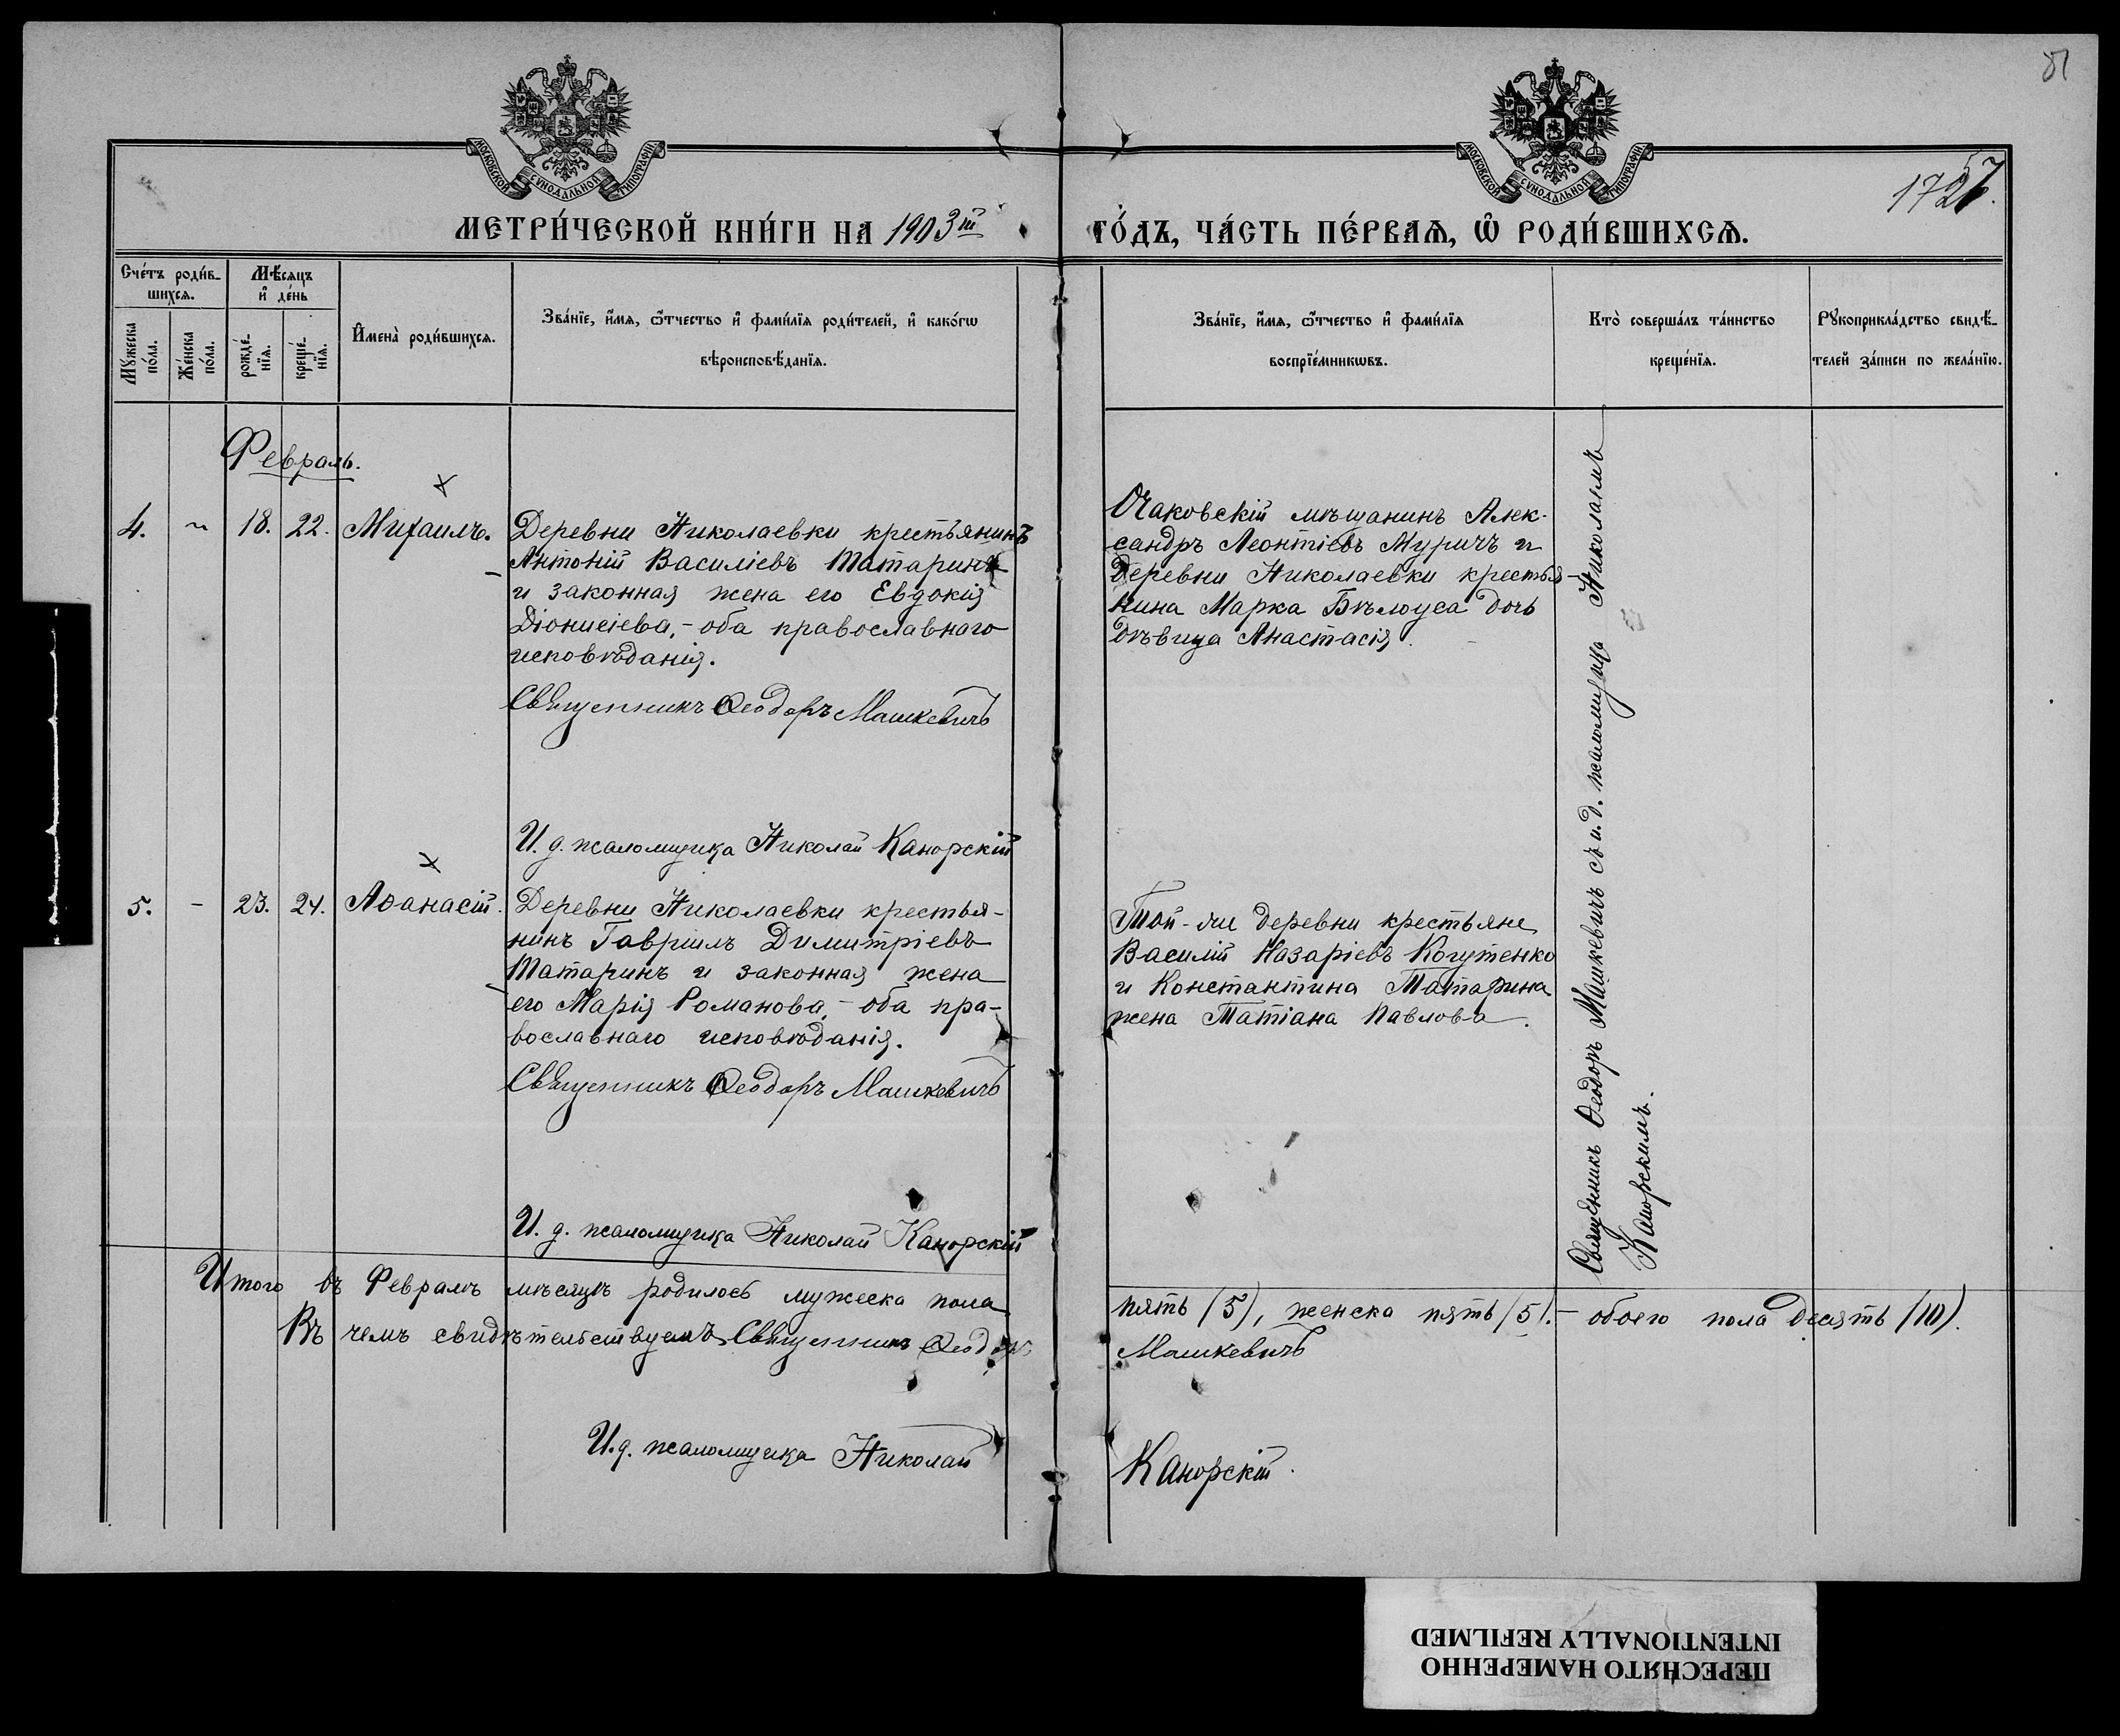 81
1727.
МОСКОВСКОЙ СУНОДАЛЬНОЙ ТИПОГРАФІИ
МОСКОВСКОЙ СУНОДАЛЬНОЙ ТИПОГРАФІИ
МЕТРИ́ЧЕСКОЙ КНИ́ГИ НА 1903й
ГО́ДЪ, ЧА́СТЬ ПЕ́РВАѦ, Ѽ РОДИ́ВШИХСѦ.
Сче́тъ роди́в-
шихсѧ.
Мѣ́сѧцъ
и҆ де́нь
Мꙋ́жеска
по́ла.
Же́нска
по́ла.
рожде́-
нїѧ.
креще́-
нїѧ.
И҆мена̀ роди́вшихсѧ.
Зва́нїе, и҆́мѧ, ѻ҆́тчество и҆ фами́лїѧ роди́телей, и҆ како́гѡ
вѣроисповѣ́данїѧ.
Зва́нїе, и҆́мѧ, ѻ҆́тчество и҆ фами́лїѧ
воспрїе́мникѡвъ.
Кто̀ соверша́лъ та́инство
креще́нїѧ.
Рꙋкоприкла́дство свидѣ́-
телей за́писи по жела́нїю.
Февраль.
4. 18. 22. Михаилъ.
Деревни Николаевки крестьянинъ
Антоній Василіевъ Татаринъ
и законная жена его Евдокія
Діонисіева, - оба православнаго
исповѣданія.
Священникъ Ѳеодоръ Машкевичъ
И. д. псаломщика Николай Канорскій
Очаковскій мѣщанинъ Алек-
сандръ Леонтіевъ Муричъ и
Деревни Николаевки крестья-
нина Марка Бѣлоуса дочь
дѣвица Анастасія.
5. - 23. 24. Аѳанасій.
Деревни Николаевки крестья-
нинъ Гавріилъ Димитріевъ
Татаринъ и законная жена
его Марія Романова, - оба пра-
вославнаго исповѣданія.
Священникъ Ѳеодоръ Машкевичъ
И. д. псаломщика Николай Канорскій
Той-же деревни крестьяне
Василій Назаріевъ Когутенко
и Константина Татарина
жена Татіана Павлова.
Священникъ Ѳеодоръ Машкевичъ съ и. д. псаломщика Николаемъ
Канорскимъ.
Итого въ Февралѣ мѣсяцѣ родилось мужеска пола
пять (5), женска пять (5). - обоего пола десять (10).
Въ чемъ свидѣтельствуемъ Священникъ Ѳеодоръ
Машкевичъ
И. д. псаломщика Николай
Канорскій.
ПЕРЕСНЯТО НАМЕРЕННО
INTENTIONALLY REFILMED